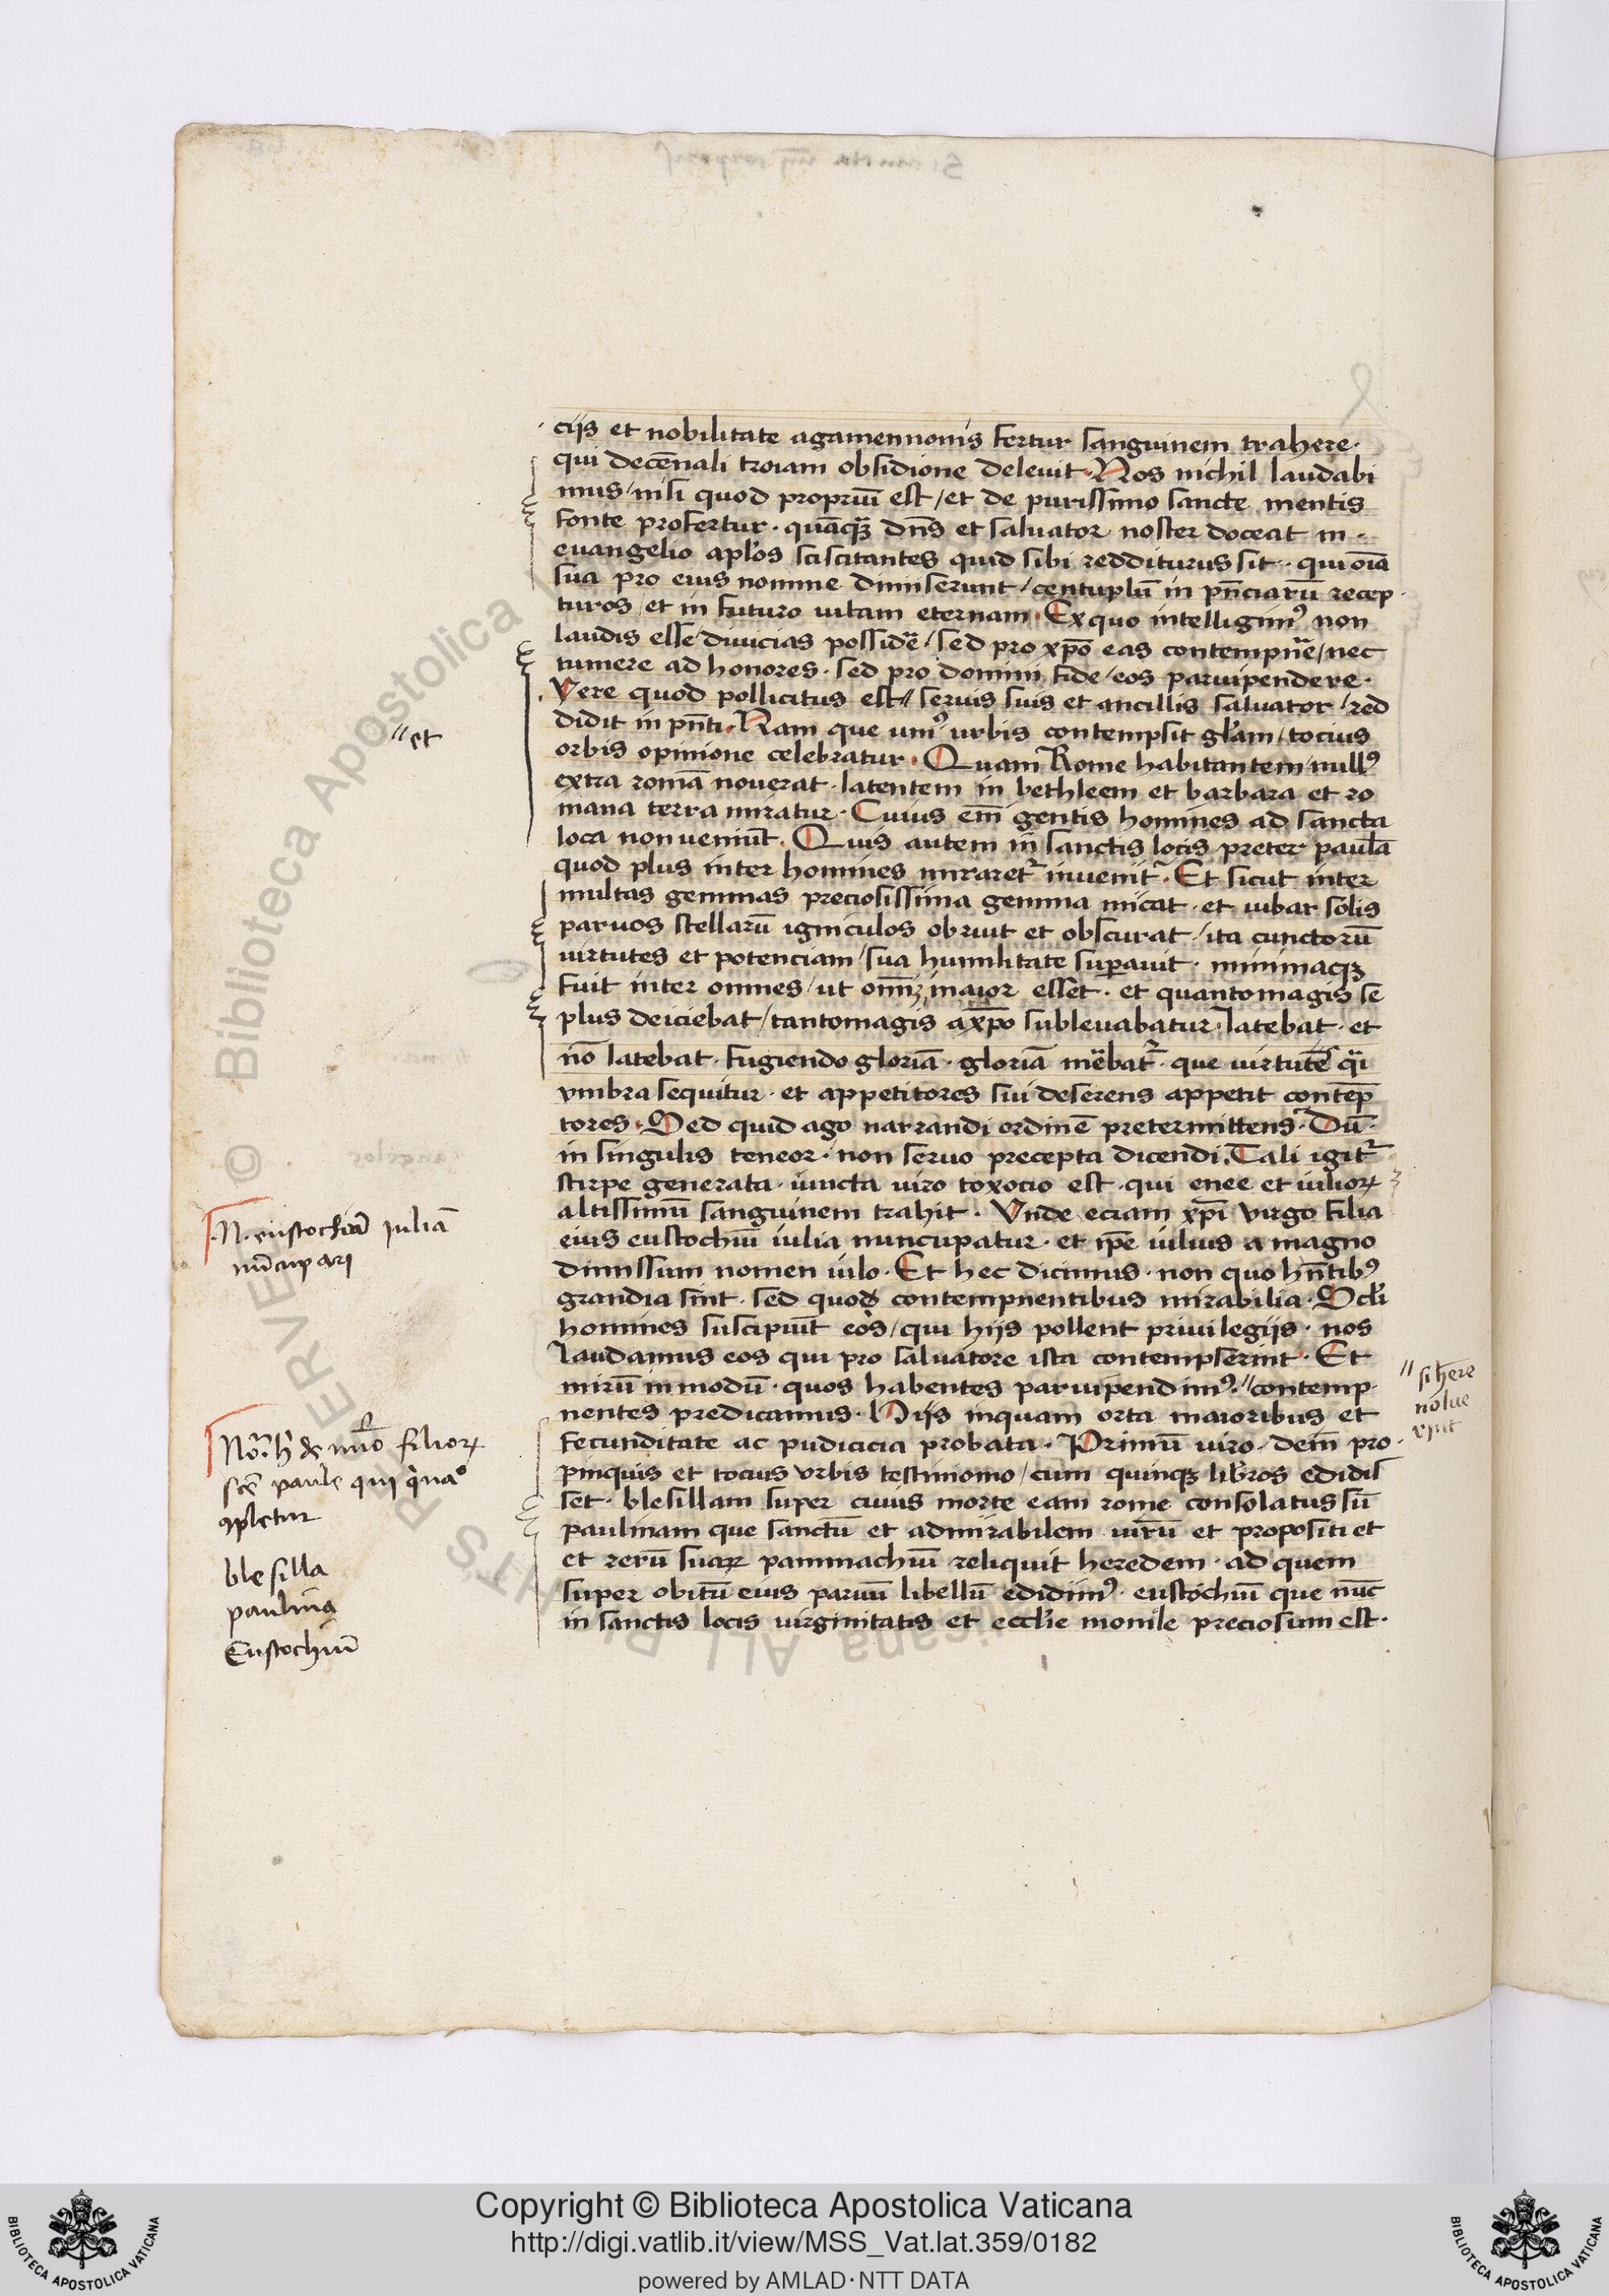 ciis et nobilitate agamennonis fertur sanguinem trahere·
qui decēnali troiam obsidione deleuit· Nos nichil laudabi
mus/nisi quod propriū est/et de purissimo sancte mentis
fonte profertur· quāqȝ dn̄s et saluator noster doceat in·
euangelio aplos sciscitantes quid sibi redditurus sit· qui oīa
sua pro eius nomine dimiserunt/centuplū in pn̄ciarū recep·
turos/et in futuro uitam eternam· Ex quo intelligimꝰ non
laudis esse/diuicias possidē/sed pro xp̄o eas contempnē/nec
tumere ad honores· sed pro domini fide/eos paruipendere·
Vere quod pollicitus est//seruis suis et ancillis saluator/red
didit in pn̄ti· Nam que uniꝰ urbis contempsit glam/tocius
orbis opinione celebratur· Quam Rome habitantem/nullꝰ
extra romā nouerat· latentem in bethleem et barbara et ro
mana terra miratur· Cuius em̄ gentis homines ad sancta
loca non ueniūt· Quis autem in sanctis locis preter paulā
quod plus inter homines miraret᷑ inuenit· Et sicut inter
multas gemmas preciosissima gemma micat· et iubar solis
paruos stellarū igniculos obruit et obscurat/ita cunctorū
uirtutes et potenciam/sua humilitate suꝑauit· minimaqȝ
fuit inter omnes/ut om̄iȝ maior esset· et quantomagis se
plus deiciebat/tantomagis a xp̄o subleuabatur· latebat· et
nō latebat· fugiendo gloriā· gloriā mēbat᷑· que uirtutē q̄i
vmbra sequitur· et appetitores sui deserens appetit contēp
tores· Sed quid ago narrandi ordinē pretermittens· Dū·
in singulis teneor· non seruo precepta dicendi· Tali igit᷑
stirpe generata· iuncta uiro toxocio est· qui enee et iulioꝝ
altissimū sanguinem trahit· Vnde eciam xp̄i virgo filia
eius eustochiū iulia nuncupatur· et ip̄e iulius a magno
dimissum nomen iulo· Et hec dicimus· non quo hn̄tibꝰ
grandia sint· sed quod contempnentibus mirabilia· Scli
homines suscipiūt eos/qui hijs pollent priuilegijs· nos
laudamus eos qui pro saluatore ista contempserint· Et
mirū in modū· quos habentes paruipendimꝰ·//contemp·
nentes predicamus· Hijs inquam orta maioribus et
fecunditate ac pudicicia probata· Primū uiro· dein̄ pro·
pinquis et tocius vrbis testimonio/cum quinqȝ libros edidis
set· blesillam super cuius morte eam rome consolatus sū
paulinam que sanctū et admirabilem uirū et propositi et
et rerū suaꝝ pammachiū reliquit heredem· ad quem
super obitū eius paruū libellū edidimꝰ· eustochiū que nūc
in sanctis locis uirginitatis et eccl̄ie monile preciosum est·
//et
·N· eustochiā Juliā
nūcupari
filioꝝ
sc̄e paule qui
ꝯpletur
blesilla
paulina
Eustochiū
//si here
nolue
rint
Biblioteca Apostolica
Copyright © Biblioteca Apostolica Vaticana
http://digi.vatlib.it/view/MSS_Vat.lat.359/0182
powered by AMLAD·NTT DATA
BIBLIOTECA APOSTOLICA VATICANA
BIBLIOTECA APOSTOLICA VATICANA